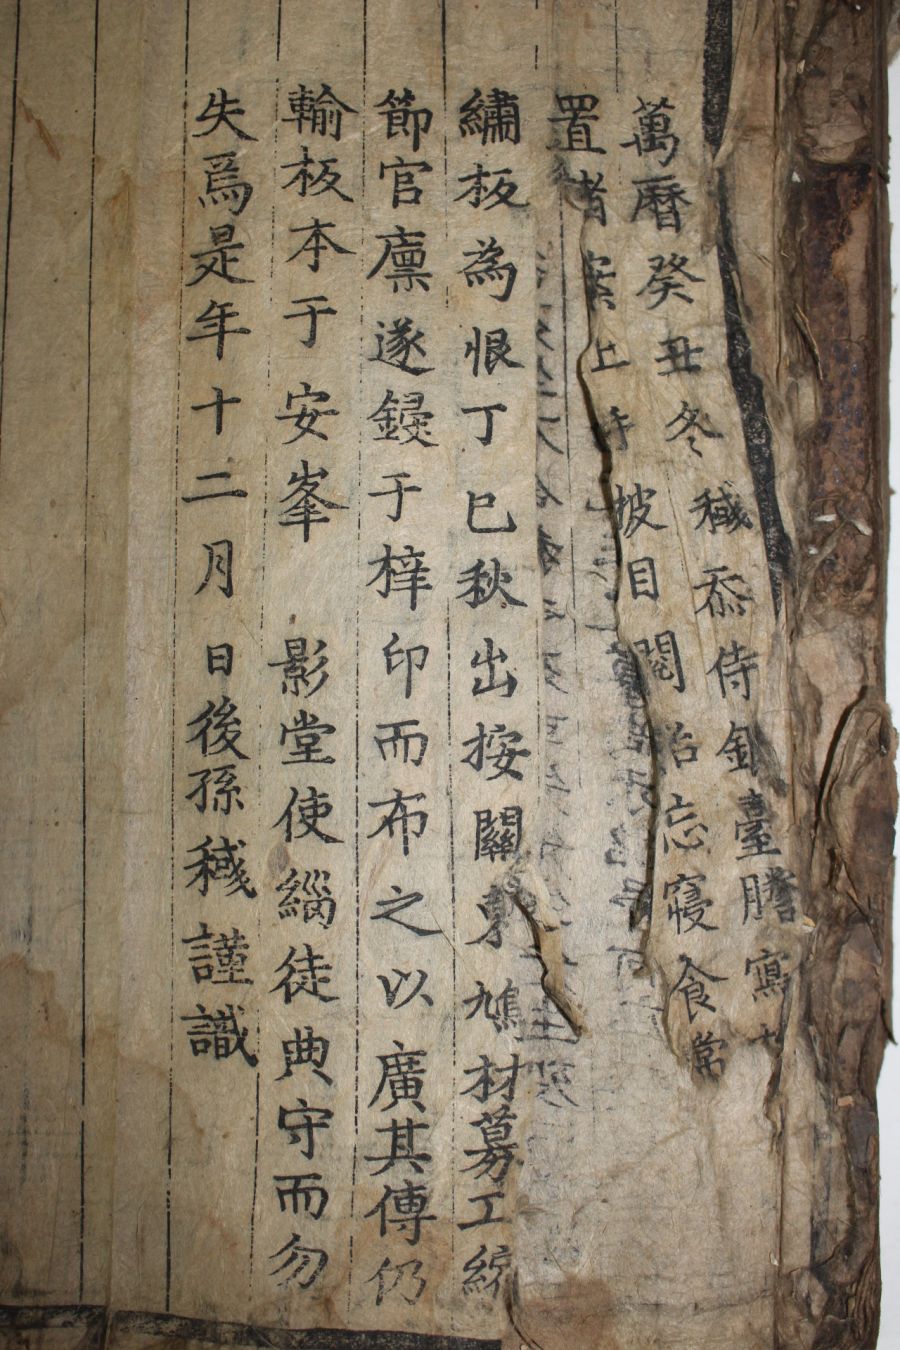 萬曆癸丑冬稶忝侍銀臺謄寫
置諸案上時披目閱殆忘寢食常
繡板為恨丁巳秋出按關東鳩材募工
節官廩遂鋟于梓印而布之以廣其傳仍
輸板本于安峯 影堂使緇徒典守而勿
失焉是年十二月日後孫稶謹識